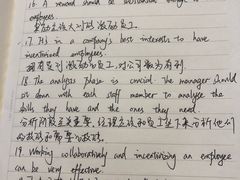 16. A reward should be
employees
奖励应该大到足以激励员工.
17. It's in a company's best interests to have
incentivized employees.
拥有受到激励的员工,对公司最为有利.
18. The analysis phase is crucial. The manager should
sit down with each staff member to analyse the
skills they have and the ones they need.
分析阶段至关重要.经理应该和员工坐下来分析他们
的技能和需要的技能.
19. Working collaboratively and incentivizing an employee
can be very effective.